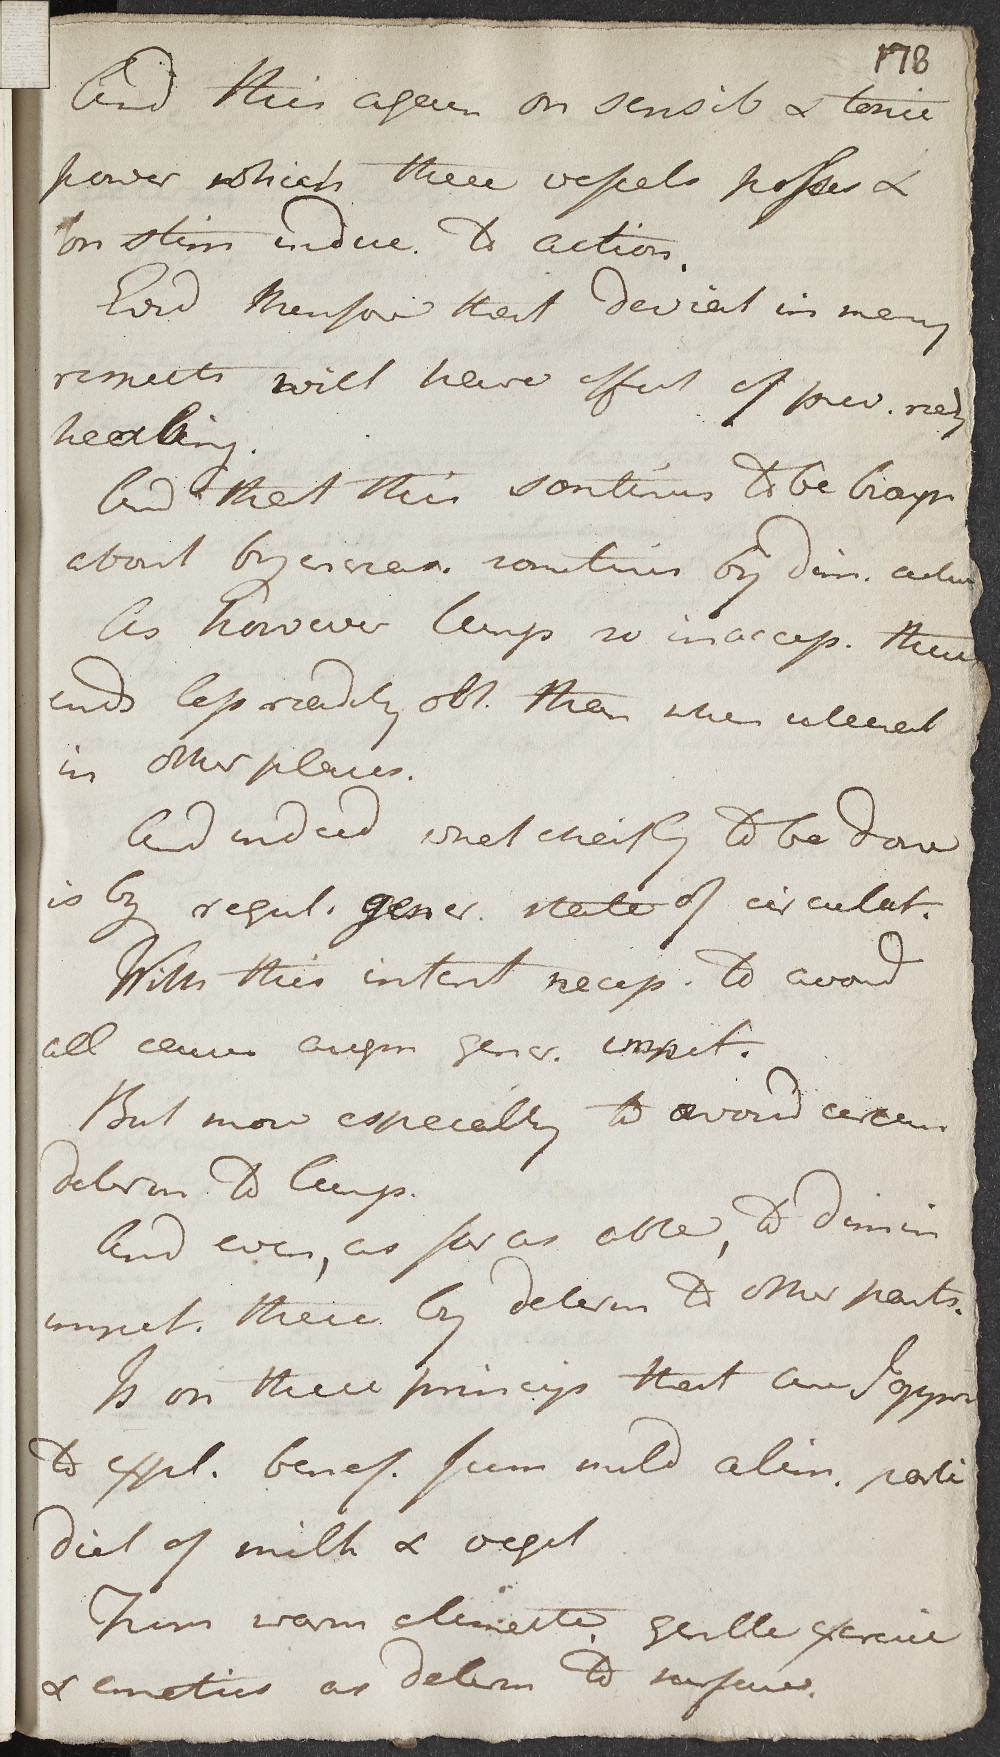 178
And this again on sensib & tonic
power which these vessels posses &
on stim induc. to action.
Evid therefore that deviat in many
respects will have effect of prev. ready
healing.
And that this somtimes to be brogt
about by increas. somtimes by dim. action
As however lungs so inaccess. these
ends less readily obt. than when ulcerat
in other places.
And indeed what cheifly to be done
is by regul. gener. state of circulat.
With this intent necess. to avoid
all causes augm gener. impet.
But more especially to avoid
determ to lungs.
And even, as far as able, to dimin
impet. there by determ to other parts.
Is on these princips that are
to expl. benef. from mild alim. parti
diet of milk & veget
From warm climate. gentle exercise
& emetics as determ to surface.